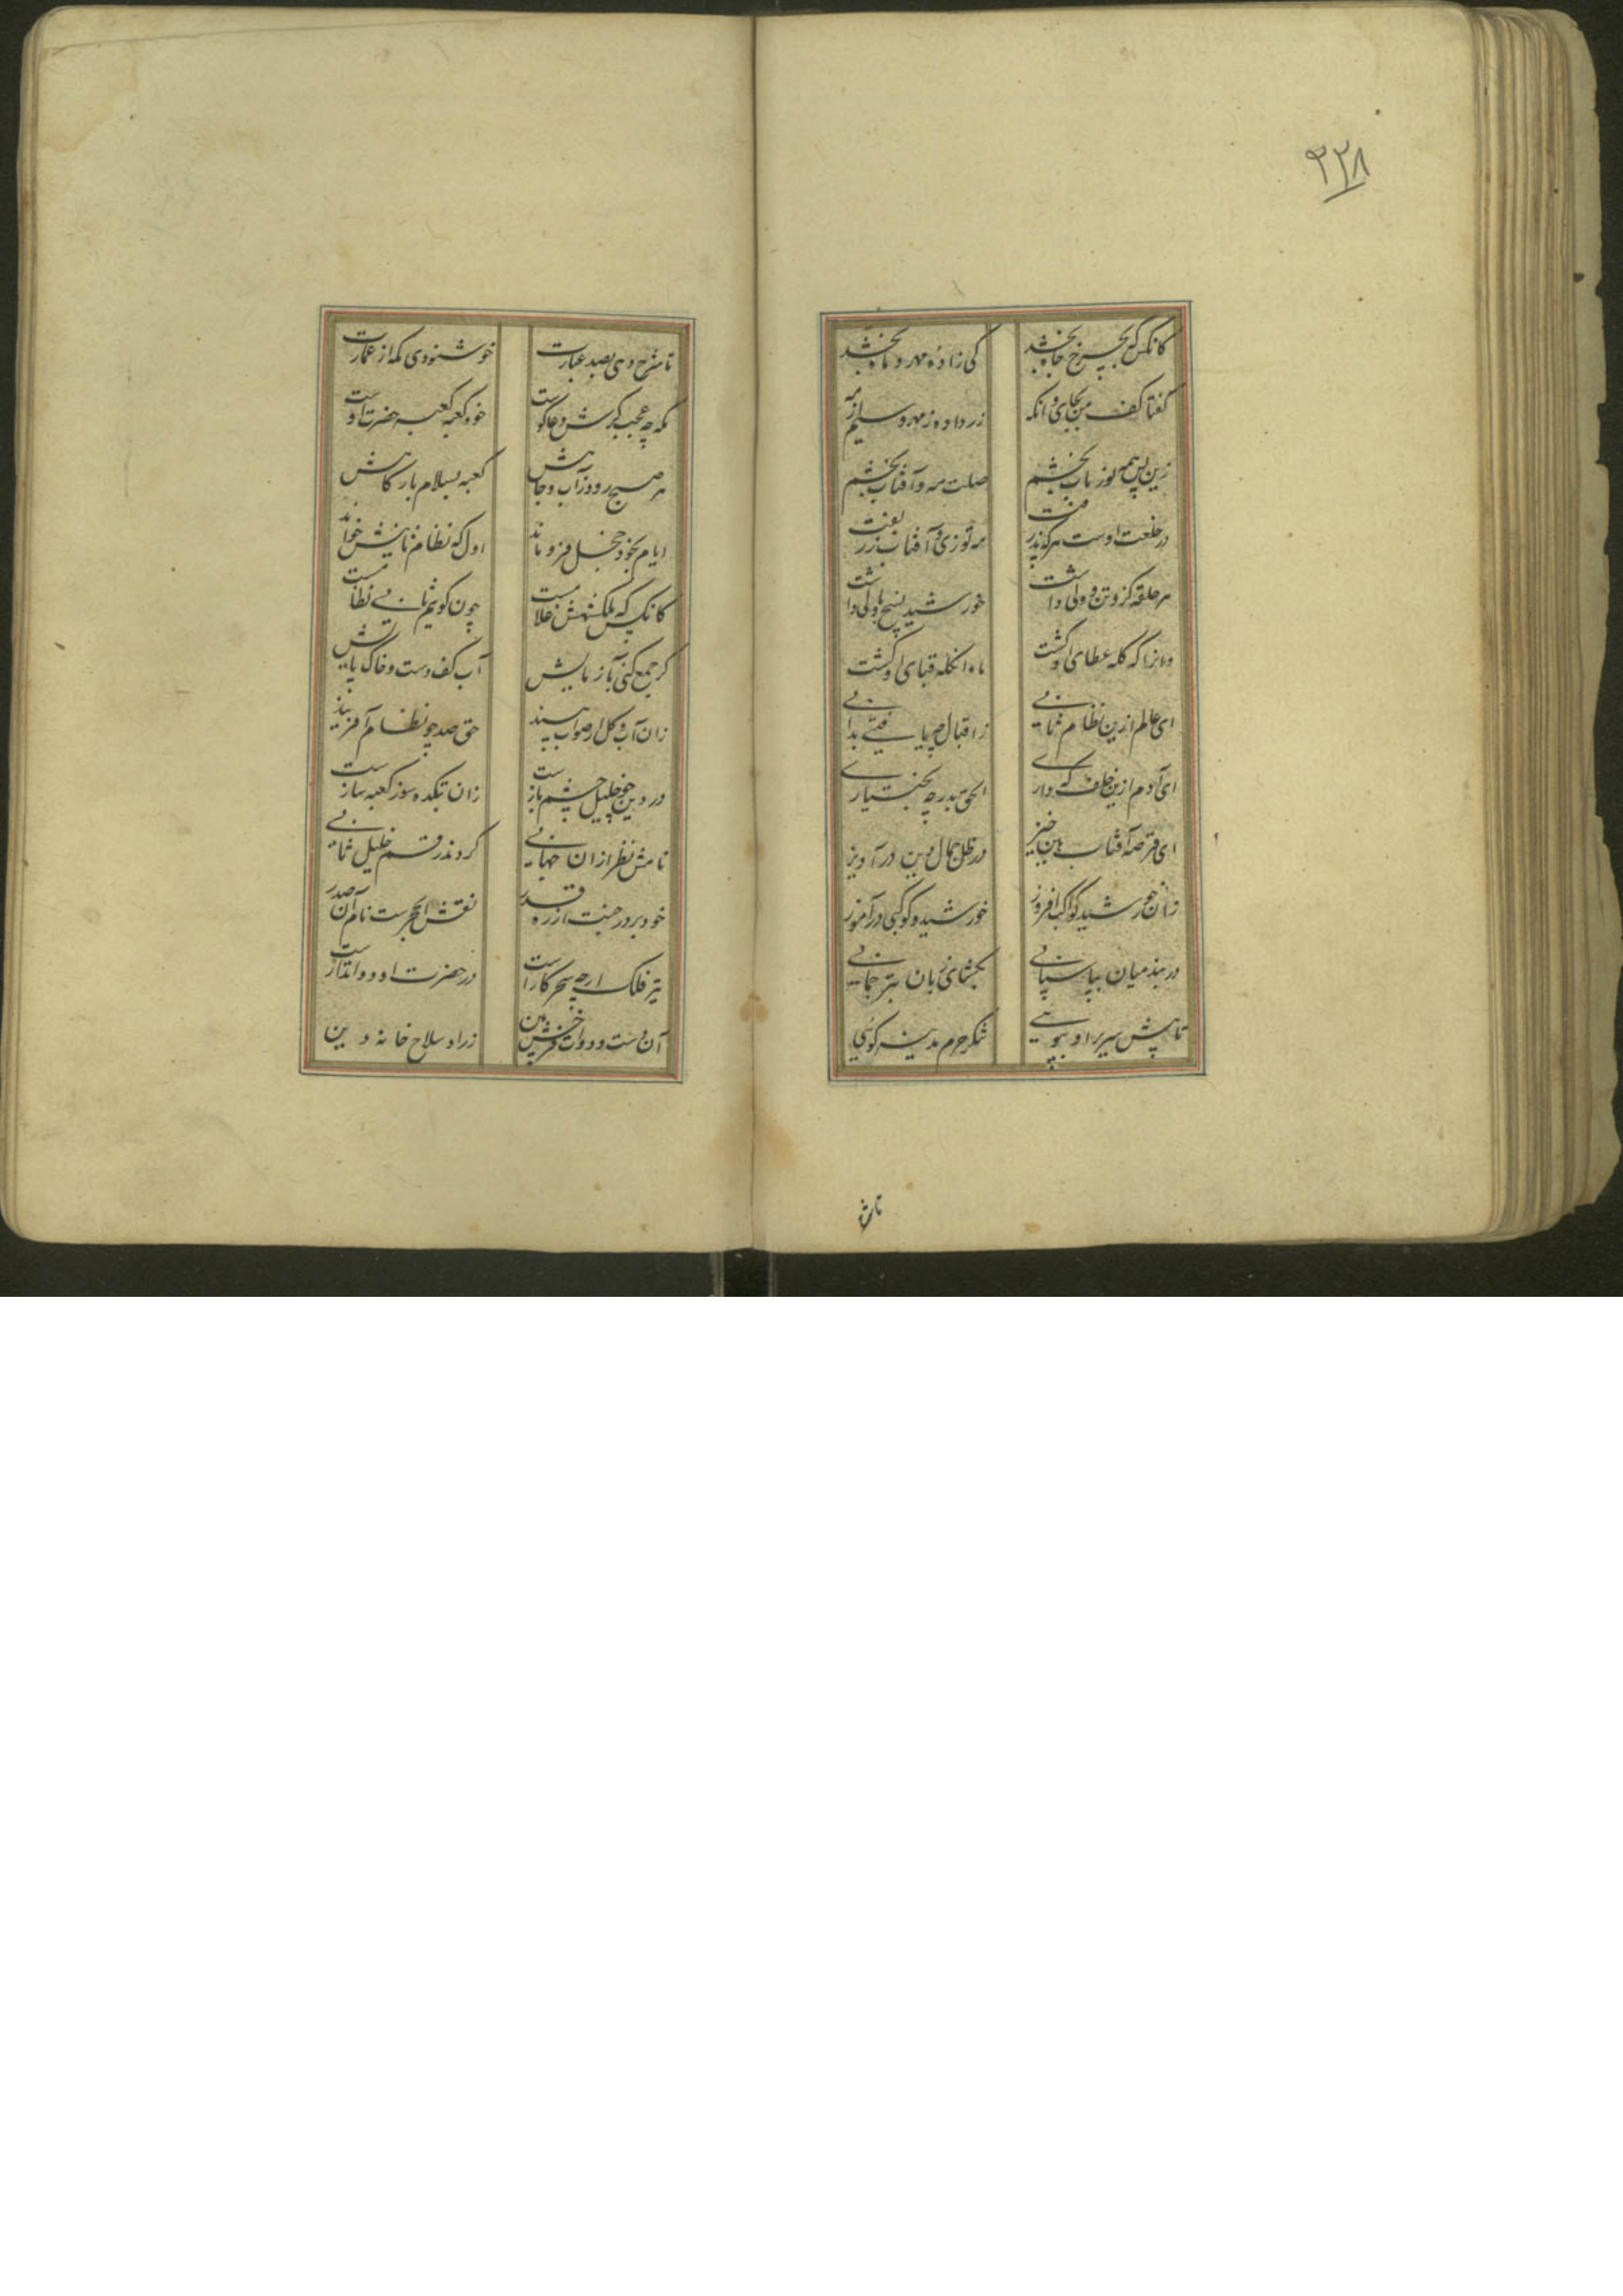 ۲۲۸
کانکس که بچرخ جاه بخشد
کی زاده مهر و ماه بخشد
گفتا کف من بجای وانکه
زر داده ز مهر و سیم از مه
زین پس همه نور ناب بخشم
صلت مه و آفتاب بخشم
در خلعت اوست هرکه پذرفت
مه توزی و آفتاب زربفت
هر حلقه کزو تن ولی داشت
خورشید نسیج پاولی داشت
وانرا که کله عطای او کشت
ماه انکله قبای او کشت
ای عالم ازین نظام ثانی
ز اقبال چه یافتی بدانی
ای آدم ازین خلف که داری
الحق بدر چه بختیاری
ای قرصه آفتاب هین خیز
در ظل جمال دین درآویز
زان خورشید کوکب افروز
خورشیدی و کوکبی درآموز
دربند میان بپاسبانی
بکشای زبان بترجمانی
تا پیش سریر او بپویی
شکر حرم مدینه کوئی
تا شرح
تا شرح دهی بصد عبارت
خوشنودی مکه از عمارت
مکه چه عجب کرش دعاکوست
خود کعبه کعبه حضرت اوست
هر صبح رود ز آب و جاهش
کعبه بسلام بارکاهش
ایام بخود خجل فرو ماند
اول که نظام ثانیش خواند
کانکس که ملکشهش غلامست
چون کویم ثانی نظامست
کر جمع کنی بآزمایش
آب کف دست و خاک پایش
زان آب و کل ار صواب بیند
حق صد چو نظام آفریند
در دین چو خلیل چشم بازست
زان بتکده سوز کعبه سازست
نامش نظر از آن جهانی
کردند رقم خلیل ثانی
خود بر در جنت از ره قدر
نقش الحجرست نام آن صدر
تیر فلک ارچه سحرکارست
در حضرت او دواتدارست
آن دست و دوات خرمن
زراد سلاح خانه دین